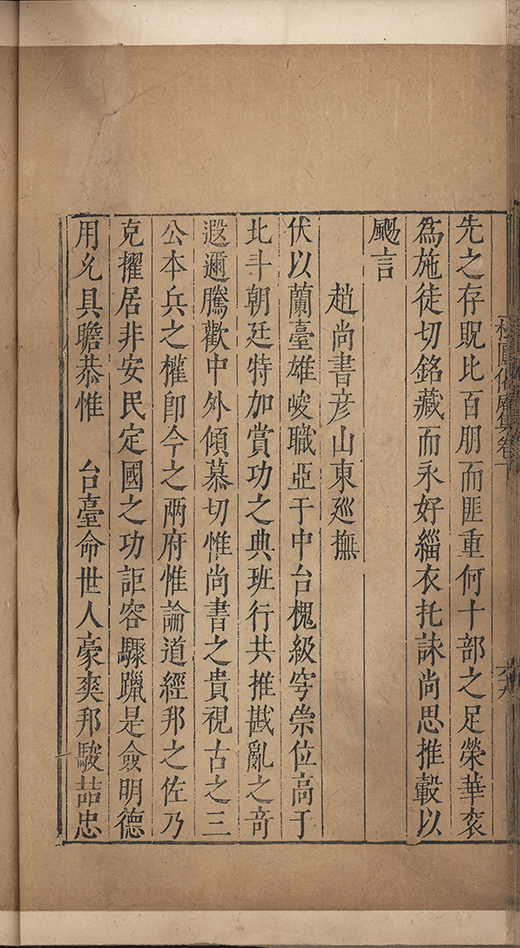 先之存貺比百朋而匪重何十部之足榮華袞
為施徒切銘藏而永好緇衣托詠尚思推轂以
颺言
趙尚書彥山東廵撫
伏以蘭臺雄峻職亞于中台槐級穹崇位高于
北斗朝廷特加賞功之典班行共推戡亂之竒
遐邇騰歡中外傾慕切惟尚書之貴視古之三
公本兵之權卽今之兩府惟論道經邦之佐乃
克擢居非安民定國之功詎容驟躐是僉明德
用允具瞻恭惟 台臺命世人豪奭邦駿喆忠